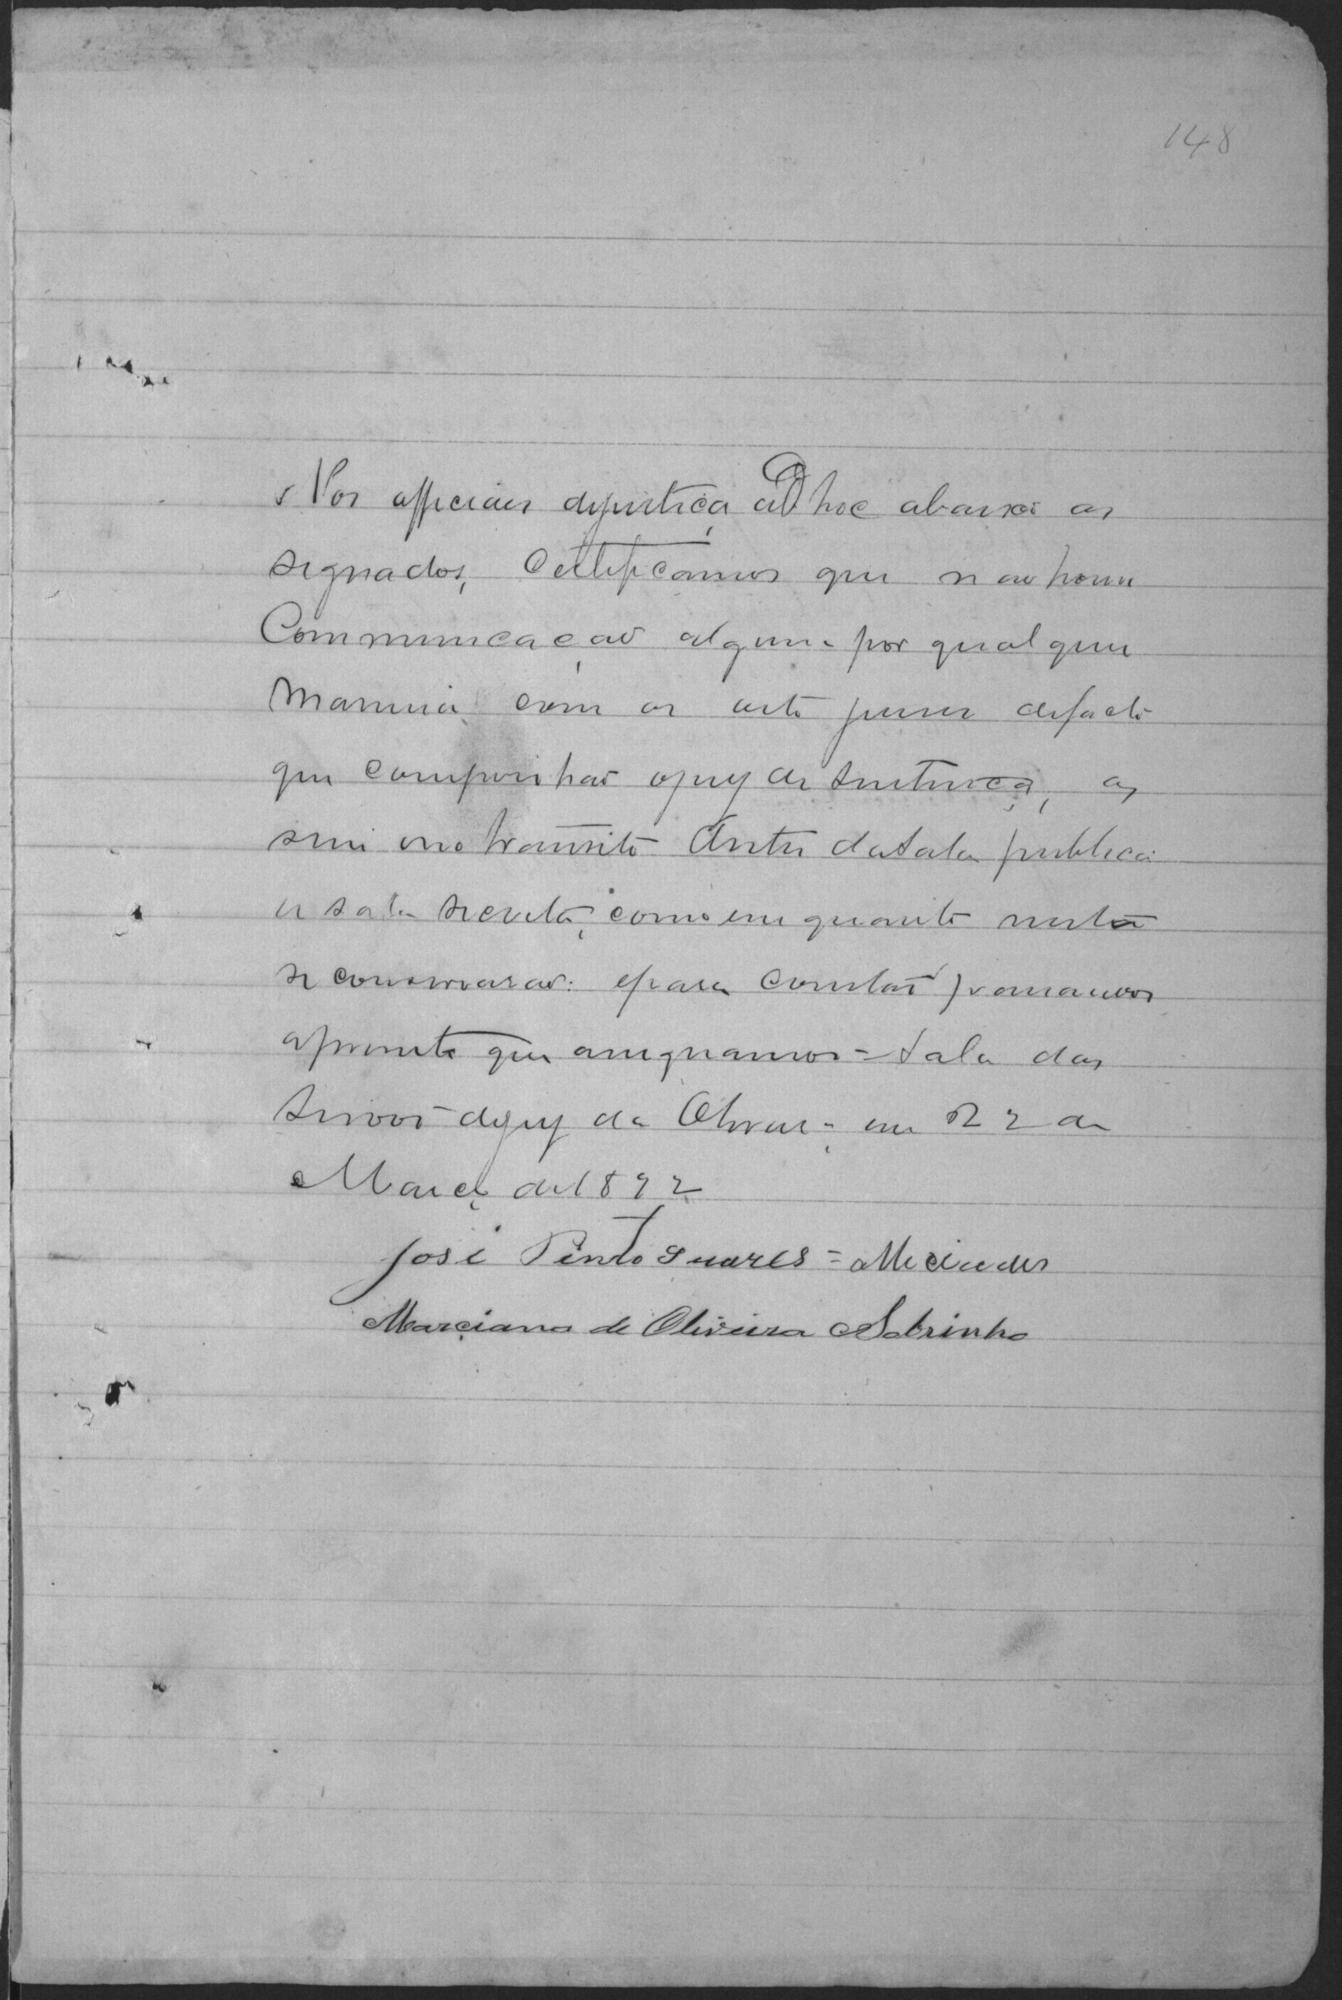 148
Nos officiaes dejustiça ad hoc abaixo as
signados, Certificamos que não houve
Communicação alguma por qualquer
maneira com os oito juizes defacto
que compunhão ojury de sentença, as
sim no tranzito Entre dasala publica
e sala secreta, como em quanto nesta
se conservarão: epara constar passamos
apresente que assignamos = Sala das
Sessões dojury da Oliveira em 22 de
Março de 1892
José Pinto Suares =
Marciano de Oliveira Sobrinho